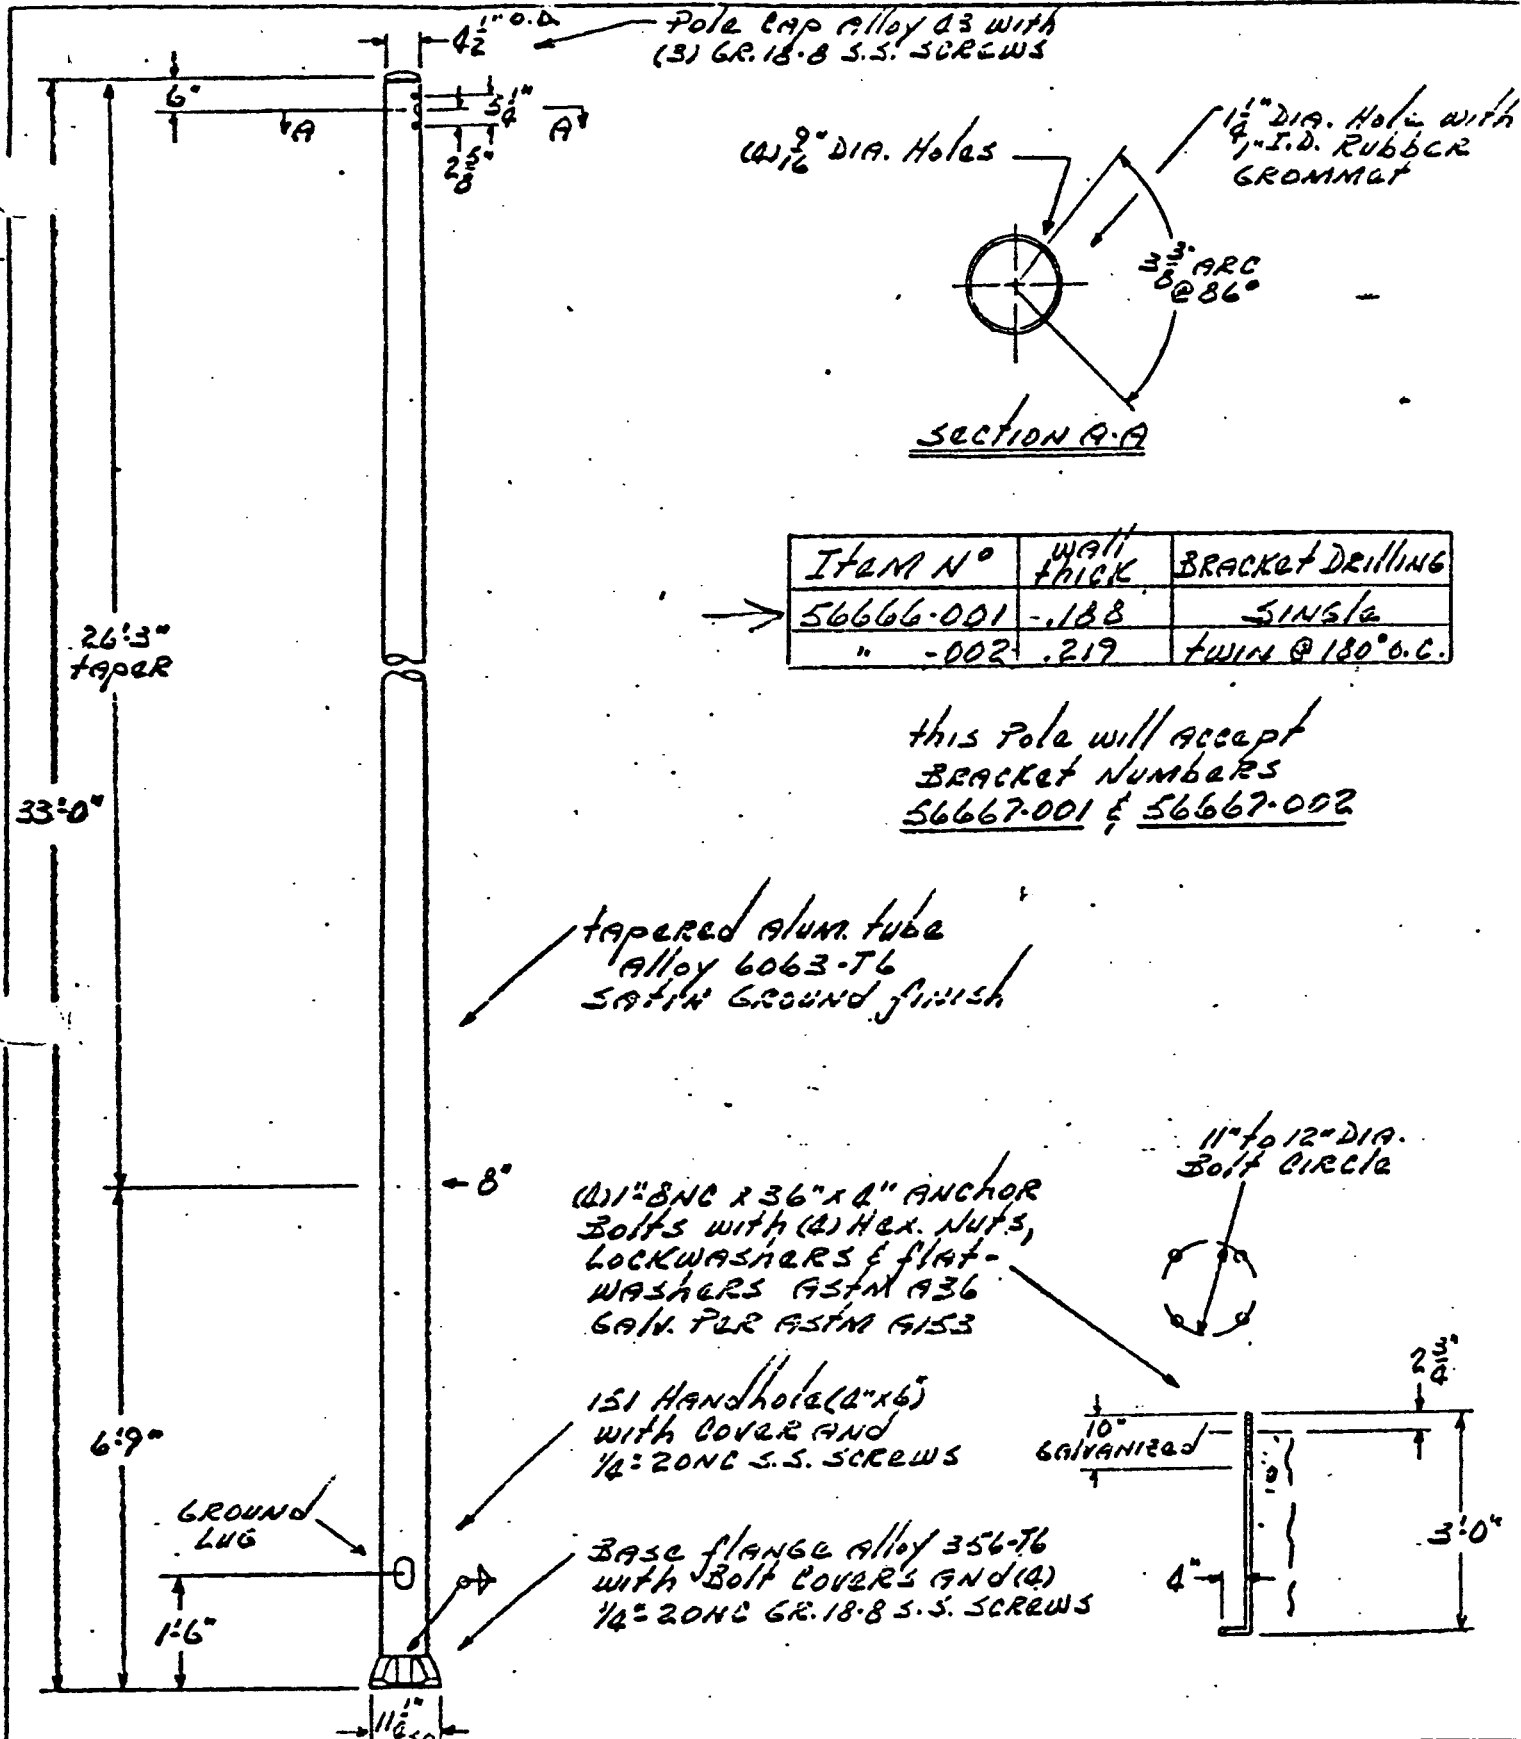 4 1/2" O.D.
Pole Cap Alloy 43 with
(3) GR. 18-8 S.S. SCREWS
6"
A
A
5 1/4"
2 5/8"
(4) 9/16" DIA. Holes
1 1/4" DIA. Hole with
1" I.D. RUBBER
GROMMET
3 3/8" ARC
@ 86°
SECTION A-A
ITEM Nº
WALL THICK
BRACKET DRILLING
56666-001
.188
SINGLE
" -002
.219
TWIN @ 180° O.C.
this Pole will ACCEPT
BRACKET NUMBERS
56667-001 & 56667-002
26'-3"
TAPER
33'-0"
TAPERED ALUM. TUBE
Alloy 6063-T6
SATIN GROUND FINISH
8"
(4) 1"-8NC x 36" x 4" ANCHOR
Bolts with (4) Hex. Nuts,
LOCKWASHERS & FLAT-
WASHERS ASTM A36
GALV. PER ASTM A153
11" to 12" DIA.
Bolt CIRCLE
151 Handhole (4"x6")
with COVER AND
1/4"-20NC S.S. SCREWS
6'-9"
GROUND
LUG
BASE FLANGE Alloy 356-T6
with Bolt COVERS AND (4)
1/4"-20NC GR. 18-8 S.S. SCREWS
1'-6"
2 3/4"
10"
GALVANIZED
3'-0"
4"
11 1/4"